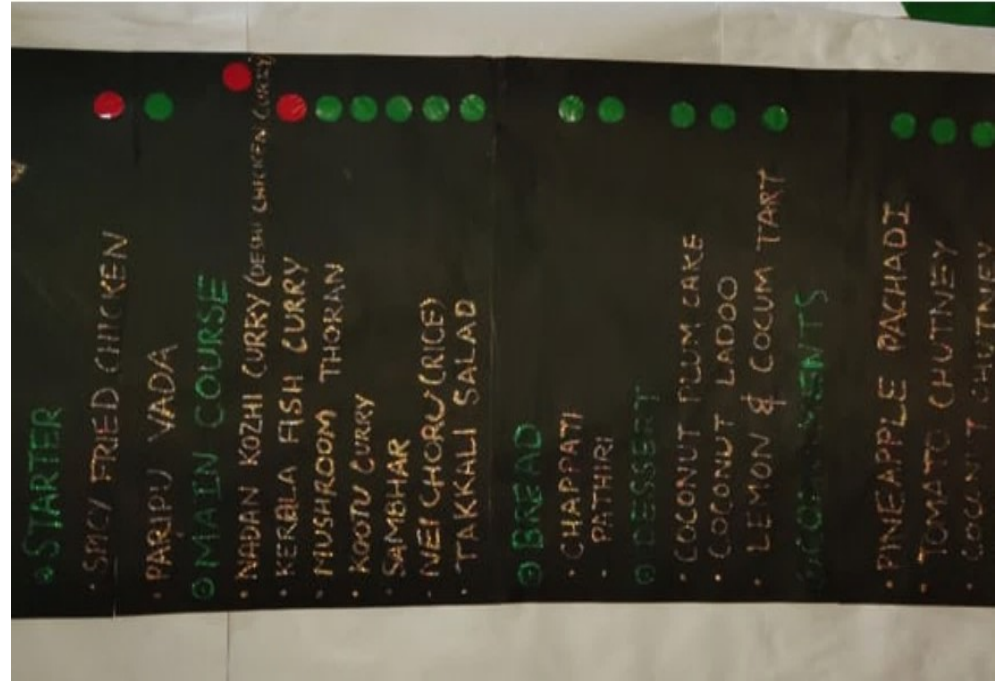 STARTER
· SPICY FRIED CHICKEN
· PARIPU VADA
MAIN COURSE
· NADAN KOZHI CURRY (DESHI CHICKEN CURRY)
· KERALA FISH CURRY
· MUSHROOM THORAN
· KOOTU CURRY
· SAMBHAR
· NEI CHORU (RICE)
· TAKKALI SALAD
BREAD
· CHAPPATI
· PATHIRI
DESSERT
· COCONUT PLUM CAKE
· COCONUT LADOO
· LEMON & COCUM TART
· PINEAPPLE PACHADI
· TOMATO CHUTNEY
· COCONUT CHUTNEY